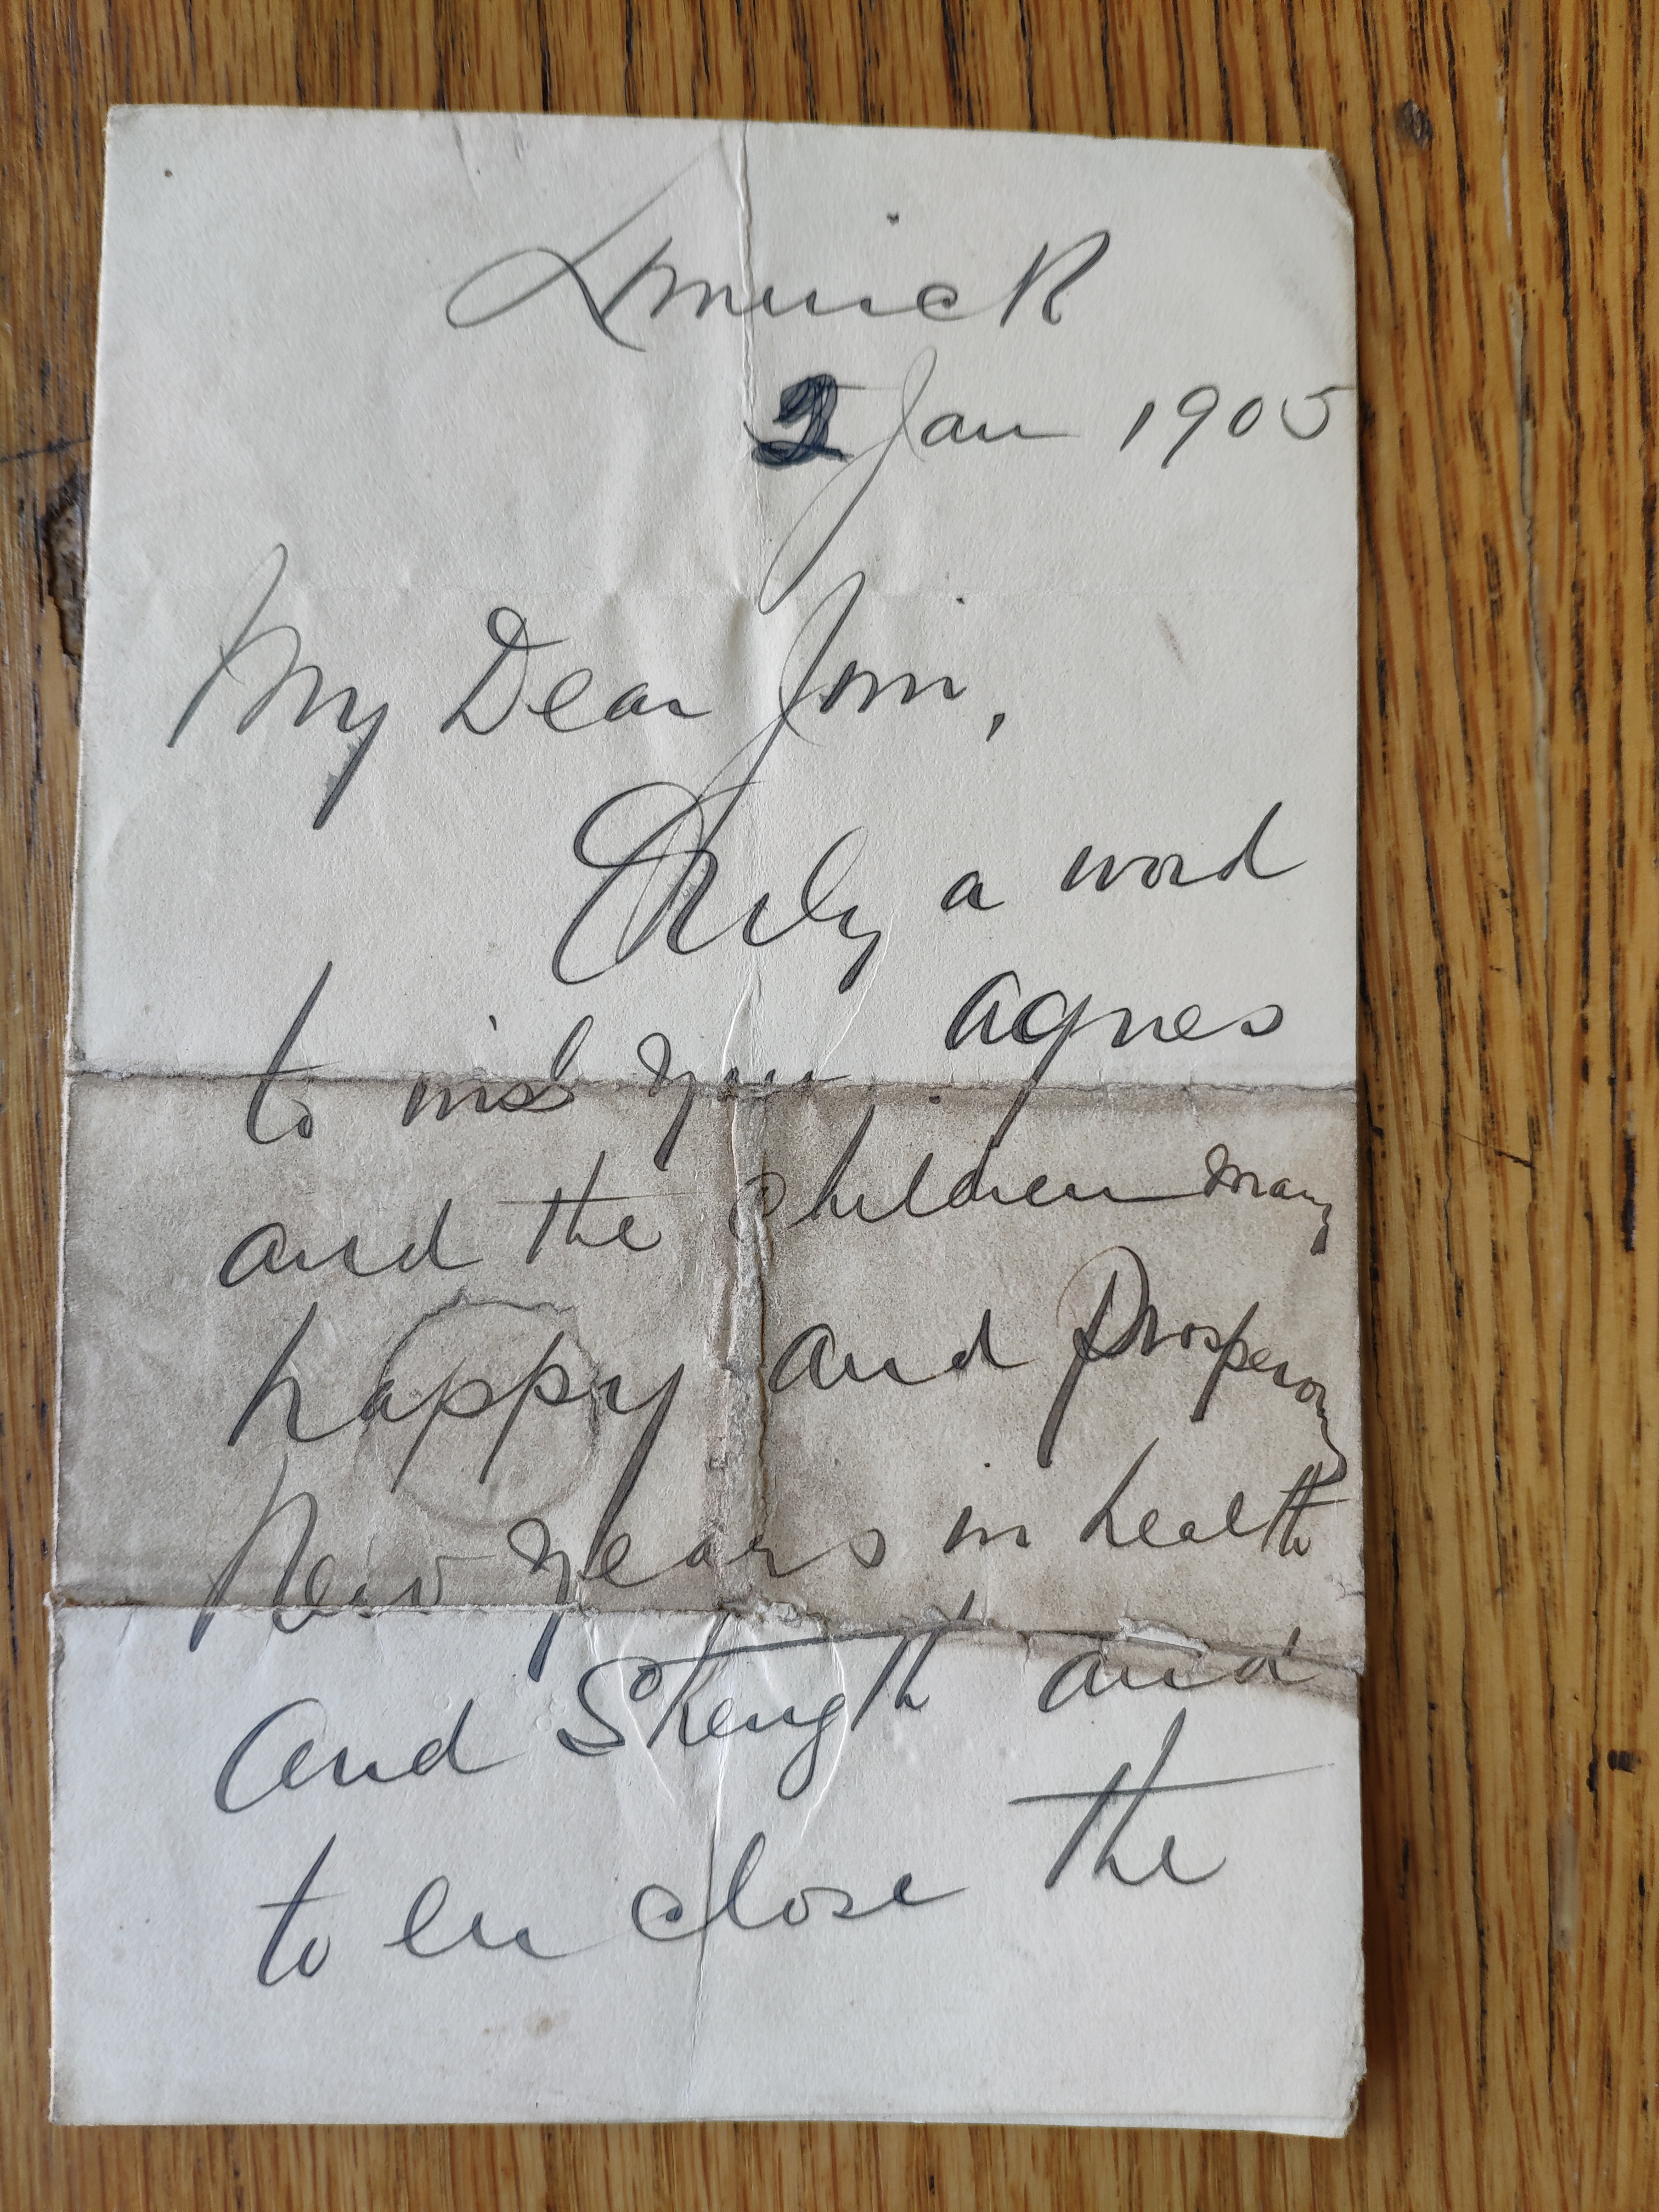 Limerick
2 Jan 1905
My Dear Jim,
Only a word
to wish you, Agnes
and the children many
happy and Prosperous
New Years in health
and Strength and
to enclose the